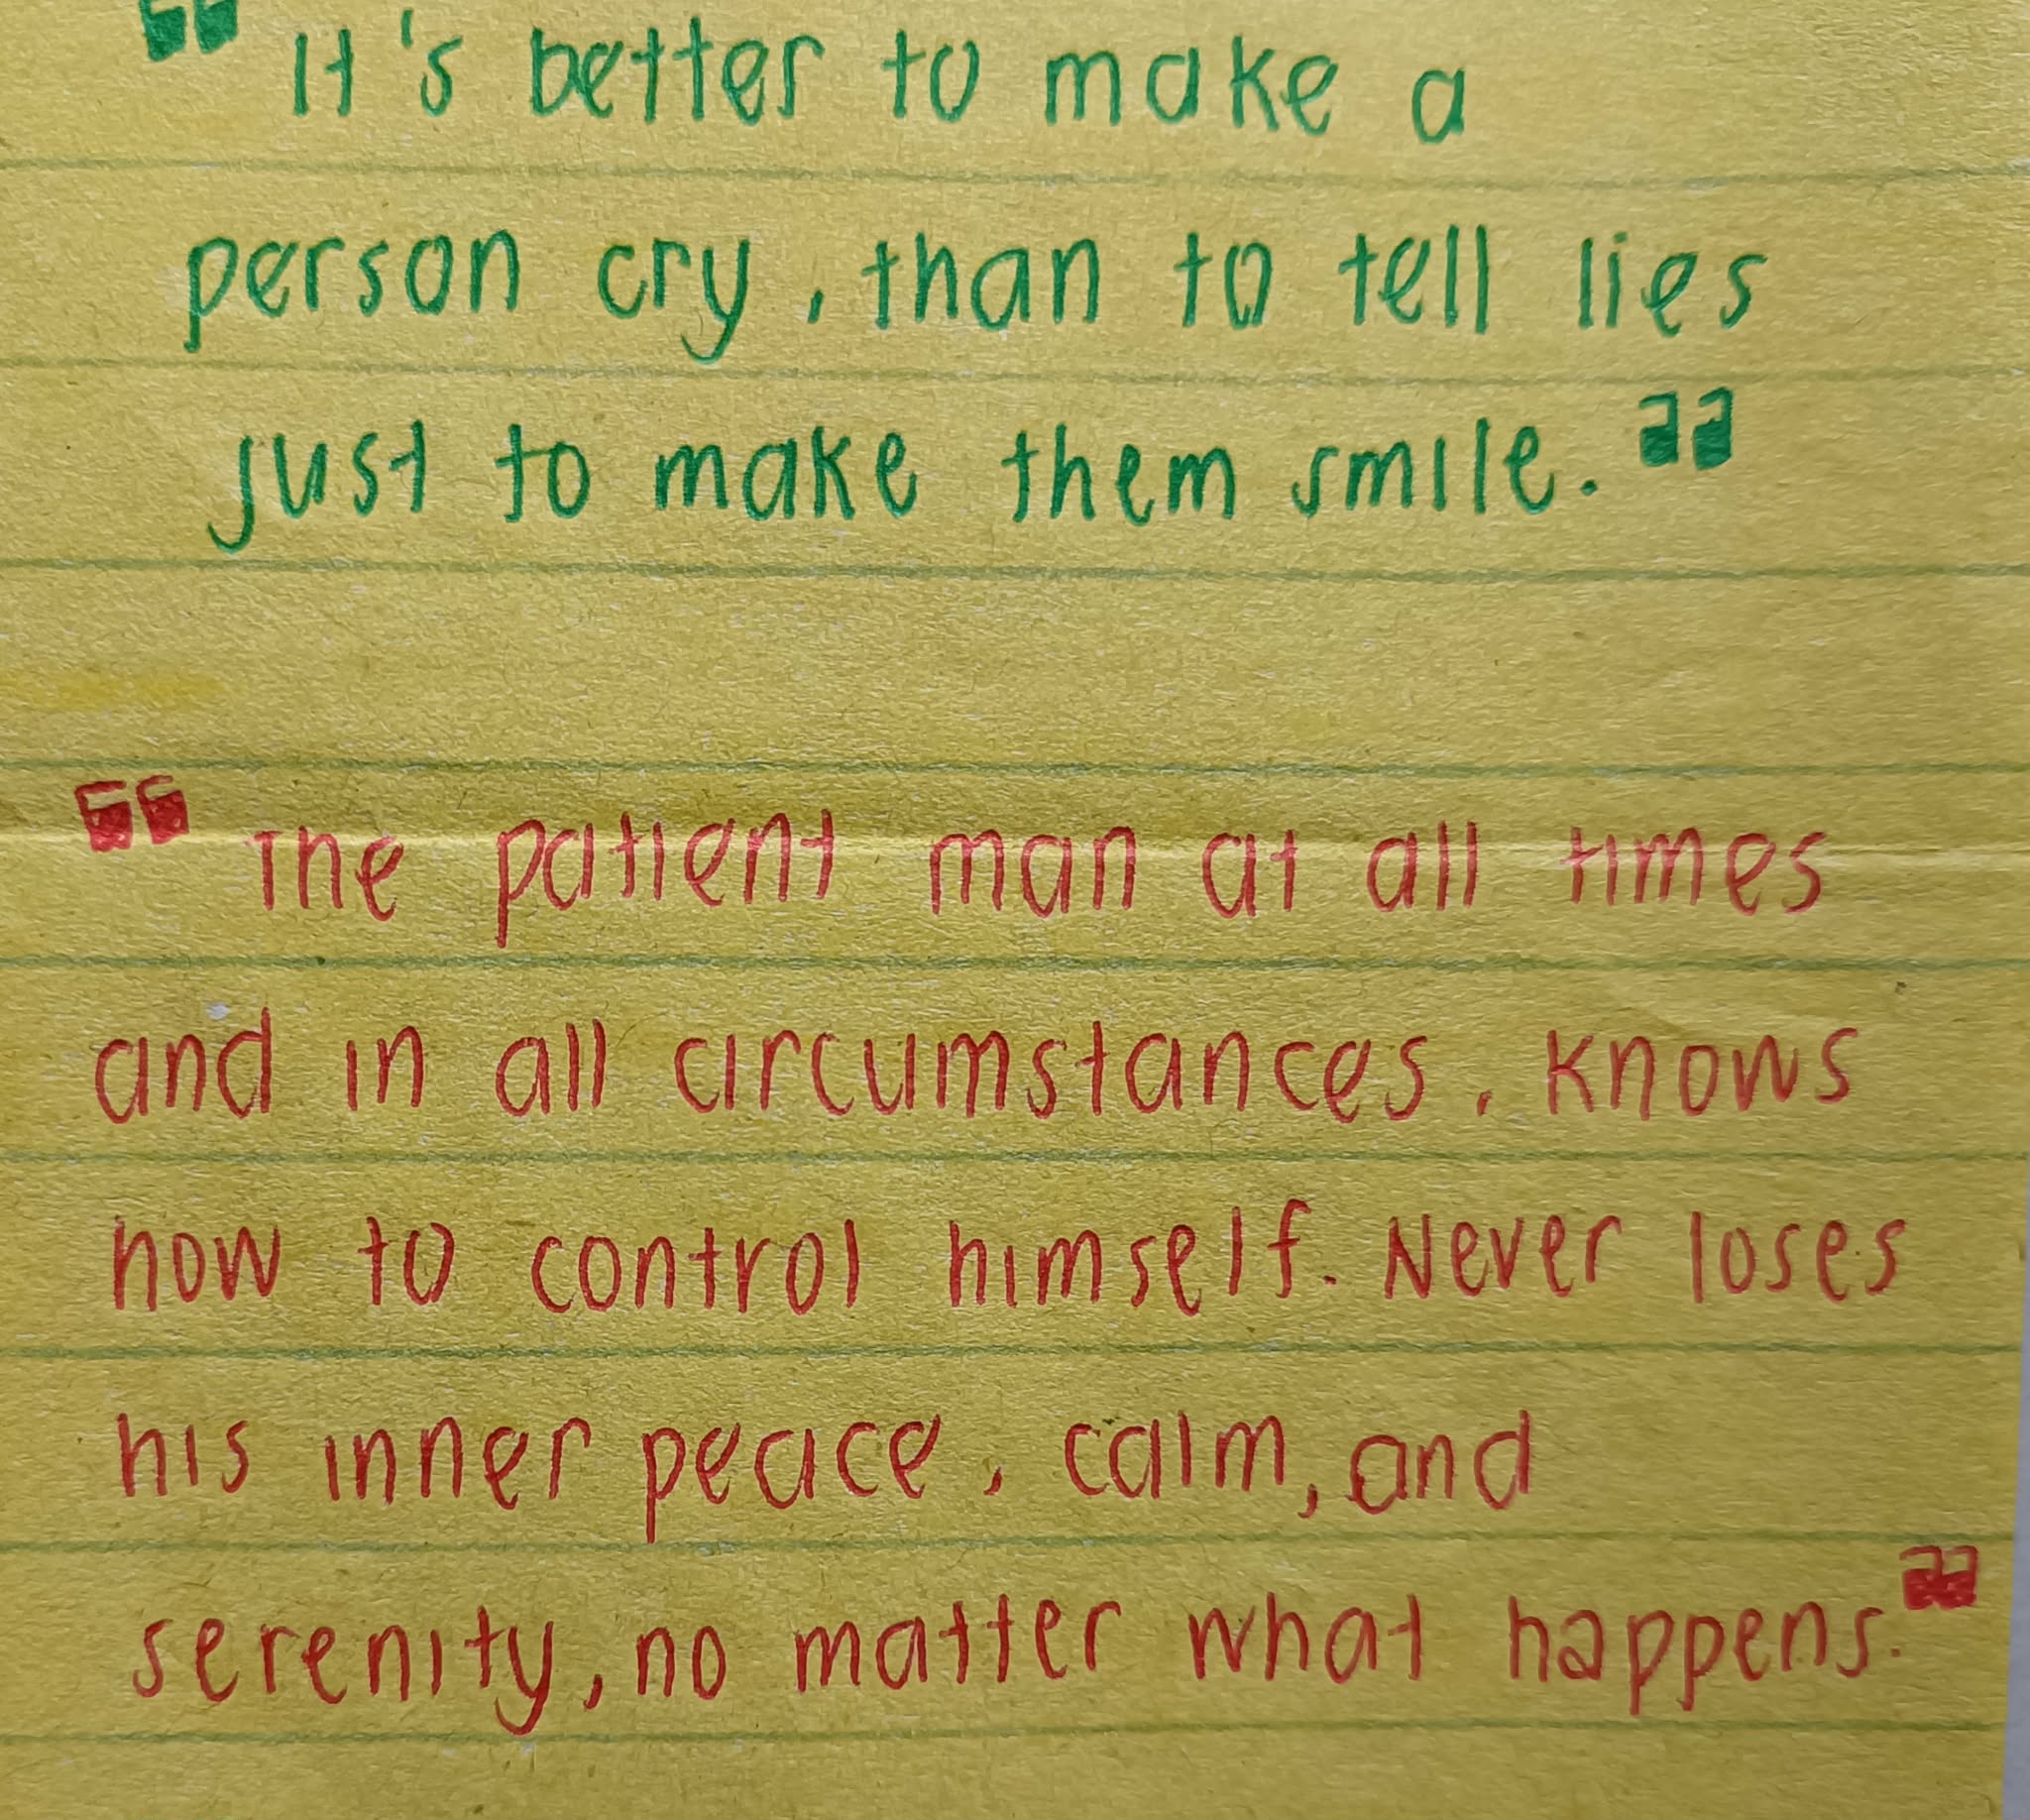 “ It's better to make a
person cry, than to tell lies
just to make them smile. ”
“ The patient man at all times
and in all circumstances, knows
how to control himself. Never loses
his inner peace, calm, and
serenity, no matter what happens. ”